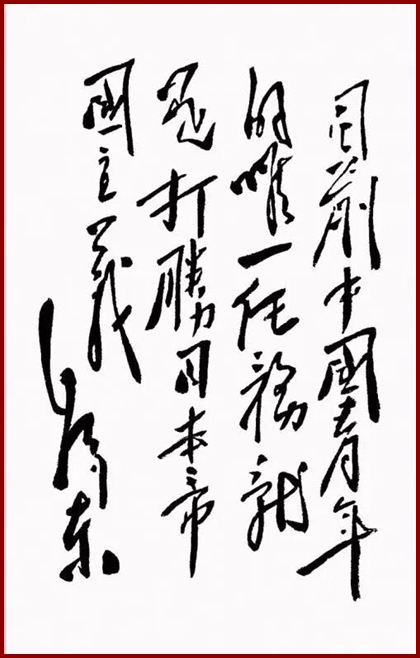 目前中國青年
的唯一任務就
是打勝日本帝
國主義
毛澤东